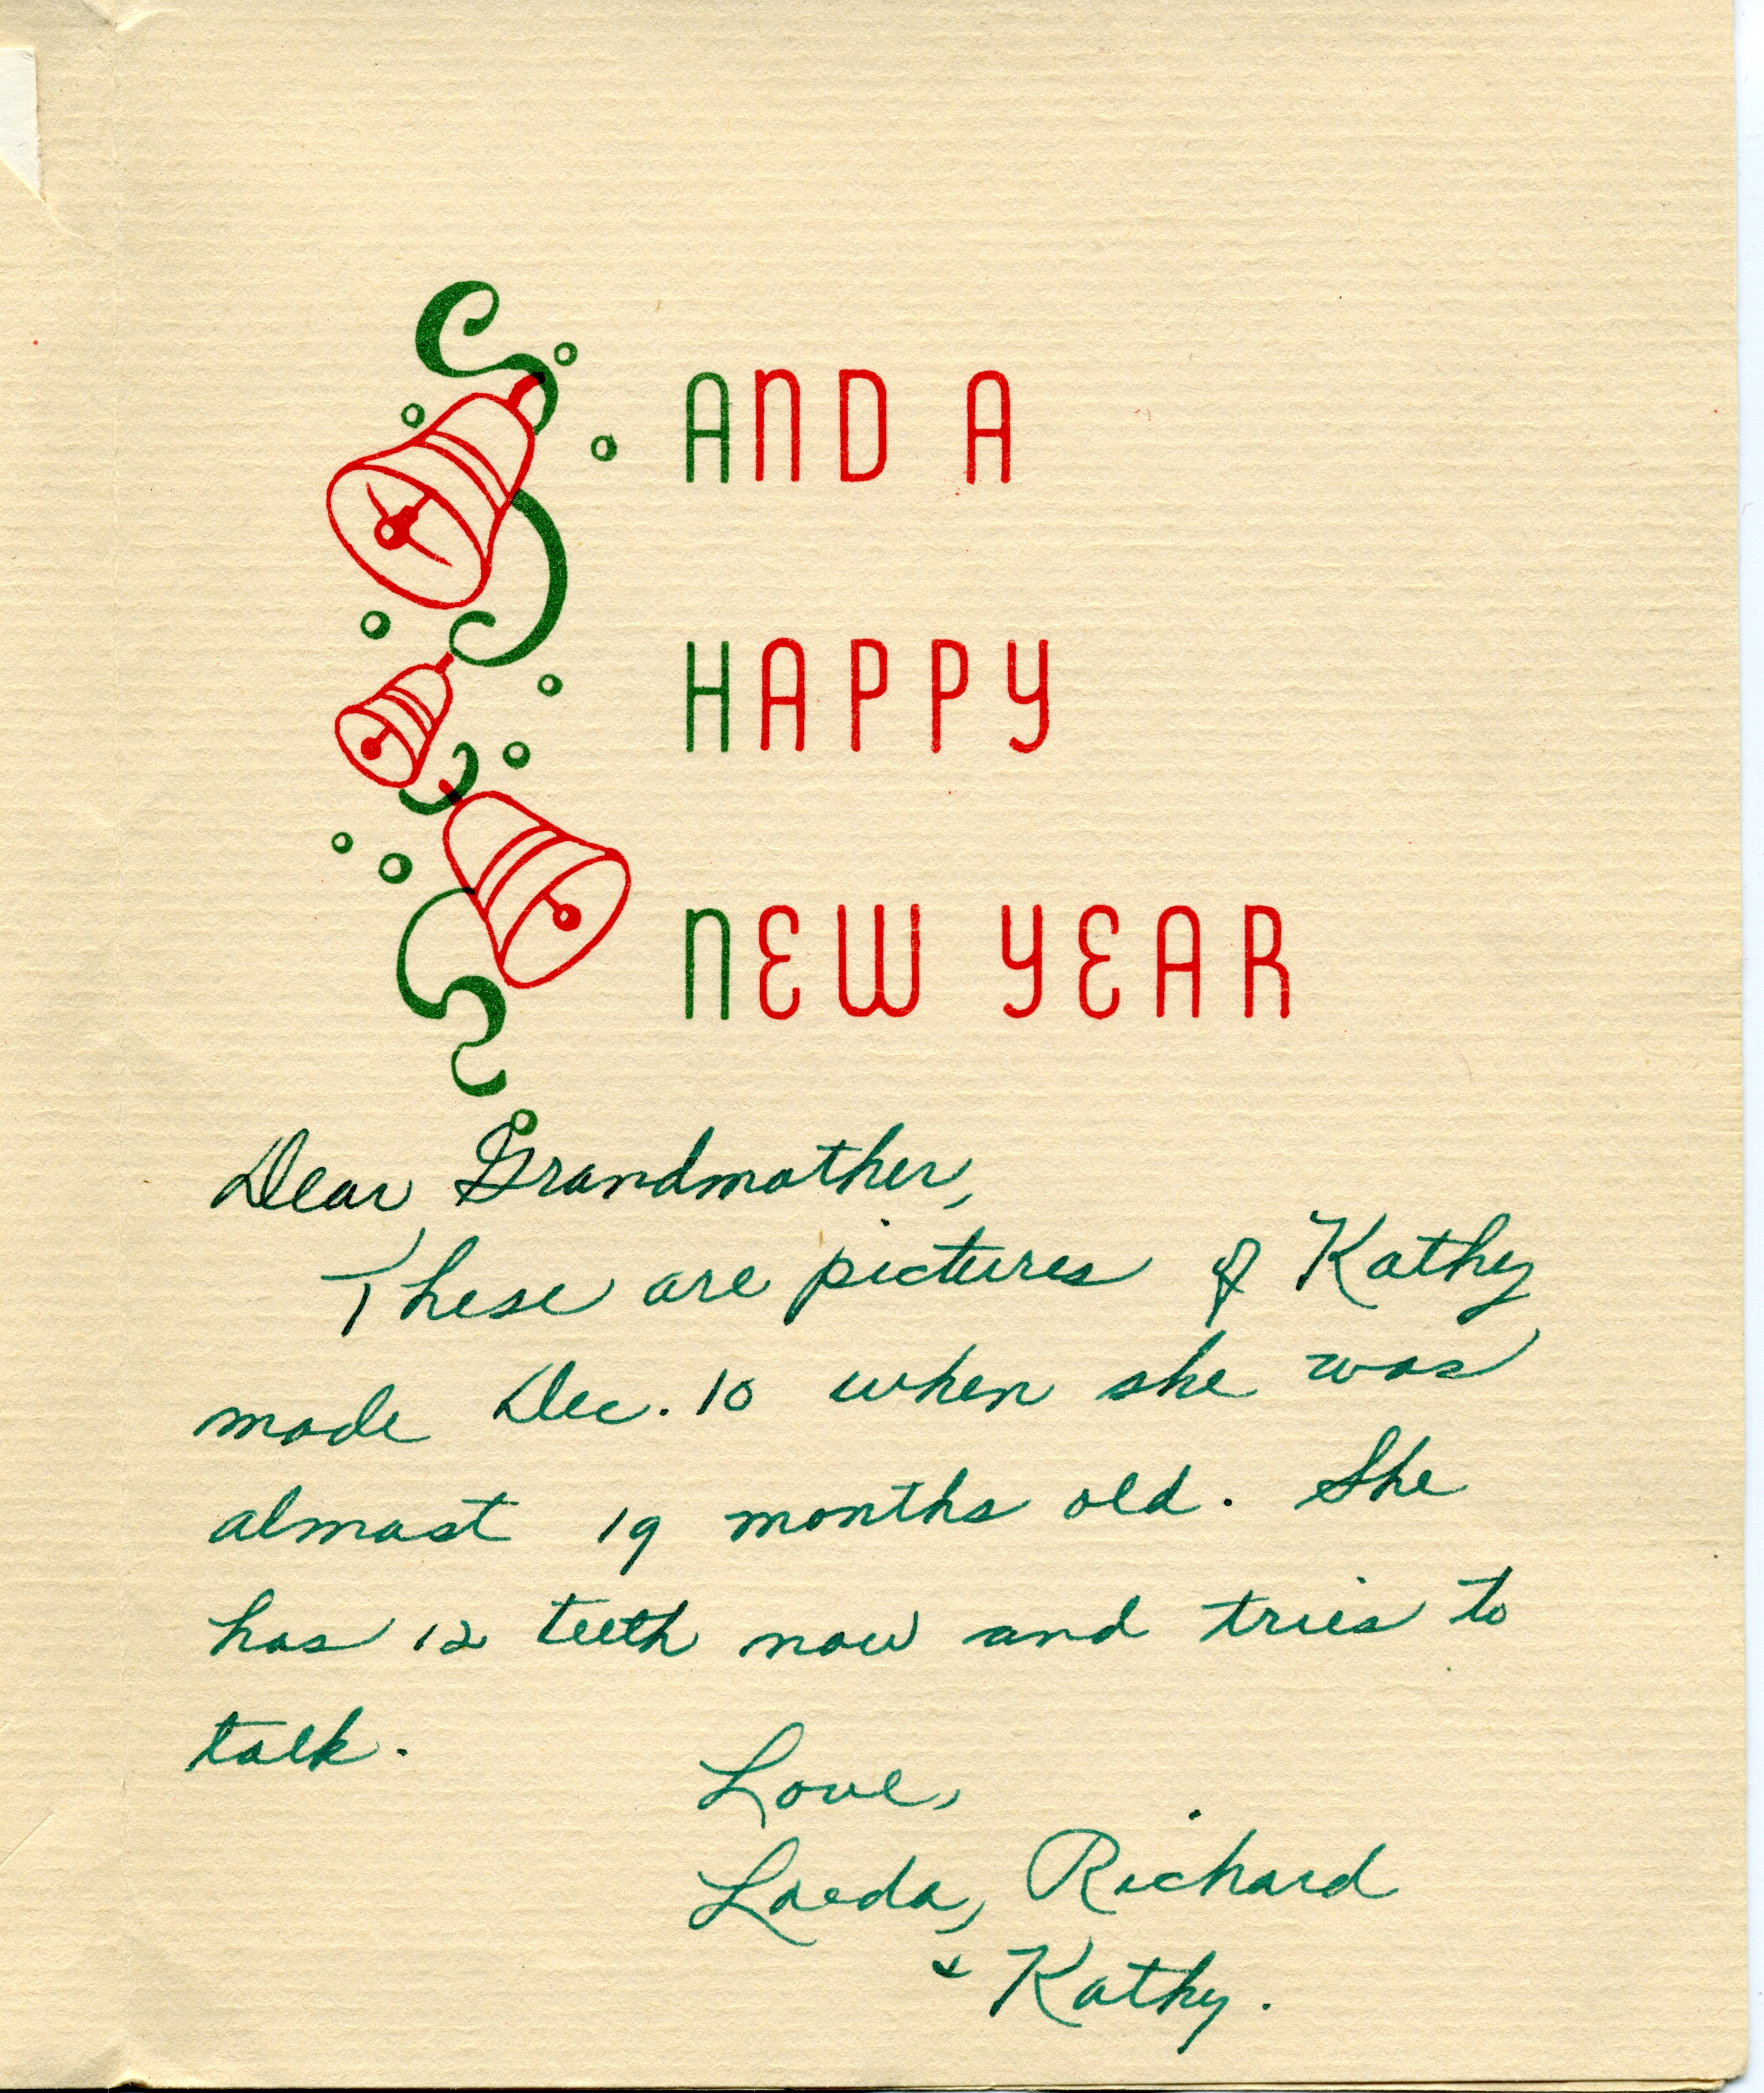 AND A
HAPPY
NEW YEAR
Dear Grandmother,
These are pictures of Kathy
made Dec. 10 when she was
almost 19 months old. She
has 12 teeth now and tries to
talk.
Love,
Laeda, Richard
& Kathy.